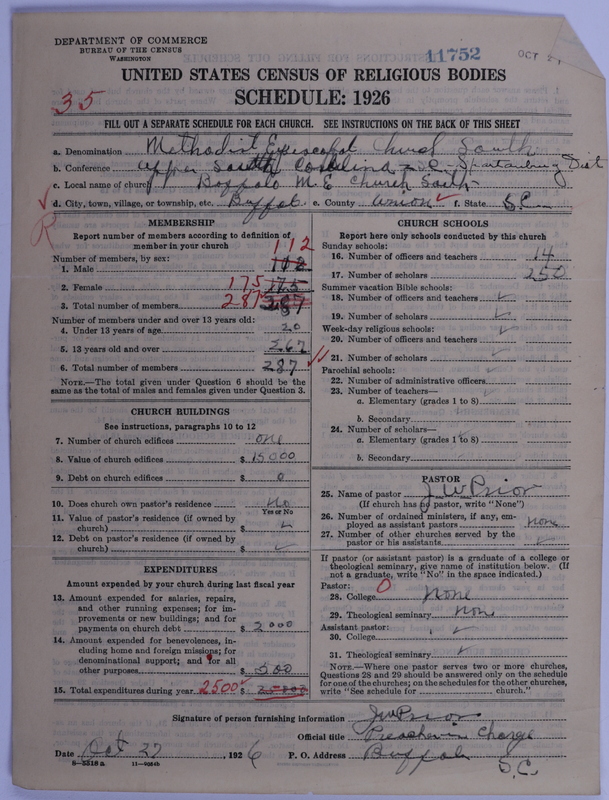 DEPARTMENT OF COMMERCE
BUREAU OF THE CENSUS
WASHINGTON
11752
OCT 2
UNITED STATES CENSUS OF RELIGIOUS BODIES
35
SCHEDULE: 1926
FILL OUT A SEPARATE SCHEDULE FOR EACH CHURCH. SEE INSTRUCTIONS ON THE BACK OF THIS SHEET
a. Denomination Methodist Episcopal Church South
b. Conference Upper South Carolina S.C. Spartanburg Dist
c. Local name of church Buffalo M.E. Church South
d. City, town, village, or township, etc. Buffalo e. County Union f. State S.C.
R
MEMBERSHIP
Report number of members according to definition of member in your church
Number of members, by sex: 112
1. Male 112
2. Female 175 175
3. Total number of members 287 287
Number of members under and over 13 years old:
4. Under 13 years of age 20
5. 13 years old and over 267
6. Total number of members 287
NOTE.—The total given under Question 6 should be the
same as the total of males and females given under Question 3.
CHURCH BUILDINGS
See instructions, paragraphs 10 to 12
7. Number of church edifices one
8. Value of church edifices $ 15000
9. Debt on church edifices $ 0
10. Does church own pastor's residence No
Yes or No
11. Value of pastor's residence (if owned by
church) $
12. Debt on pastor's residence (if owned by
church) $
EXPENDITURES
Amount expended by your church during last fiscal year
13. Amount expended for salaries, repairs,
and other running expenses; for im-
provements or new buildings; and for
payments on church debt $ 2000
14. Amount expended for benevolences, in-
cluding home and foreign missions; for
denominational support; and for all
other purposes $ 500
15. Total expenditures during year 2500 $
CHURCH SCHOOLS
Report here only schools conducted by this church
Sunday schools:
16. Number of officers and teachers 14
17. Number of scholars 250
Summer vacation Bible schools:
18. Number of officers and teachers
19. Number of scholars
Week-day religious schools:
20. Number of officers and teachers
21. Number of scholars
Parochial schools:
22. Number of administrative officers
23. Number of teachers—
a. Elementary (grades 1 to 8)
b. Secondary
24. Number of scholars—
a. Elementary (grades 1 to 8)
b. Secondary
PASTOR
25. Name of pastor J W Prior
(If church has no pastor, write "None")
26. Number of ordained ministers, if any, em-
ployed as assistant pastors none
27. Number of other churches served by the
pastor or his assistants
If pastor (or assistant pastor) is a graduate of a college or
theological seminary, give name of institution below. (If
not a graduate, write "No" in the space indicated.)
Pastor: 0
28. College None
29. Theological seminary none
Assistant pastor:
30. College
31. Theological seminary
NOTE.—Where one pastor serves two or more churches,
Questions 28 and 29 should be answered only on the schedule
for one of the churches; on the schedules for the other churches,
write "See schedule for church."
Signature of person furnishing information J W Prior
Official title Preacher in Charge
Date Oct 27, 1926 P. O. Address Buffalo
S.C.
8-5318 a 11-9054b